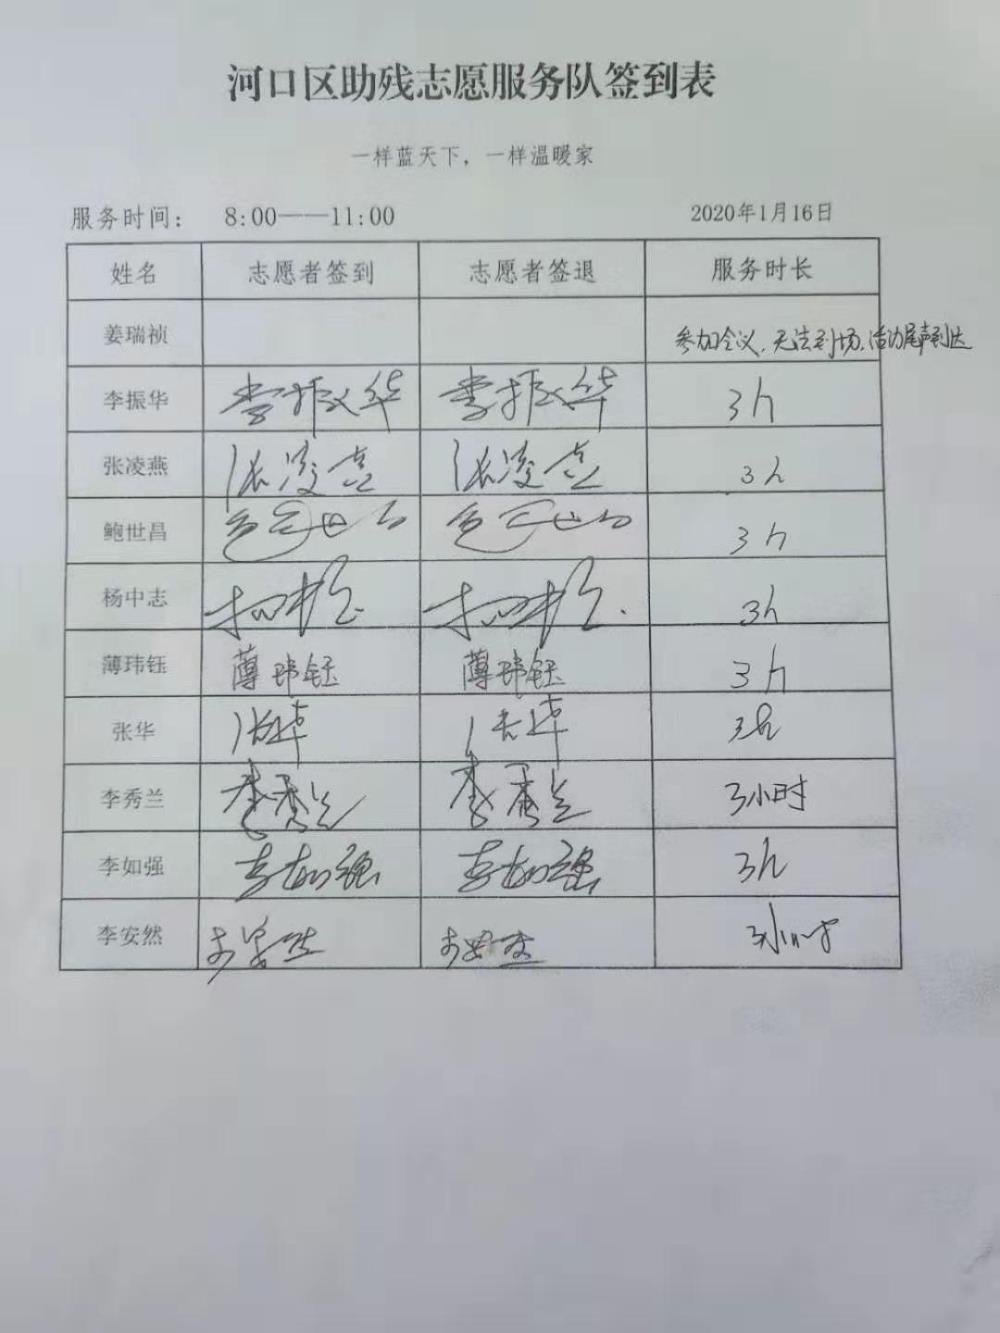 河口区助残志愿服务队签到表
一样蓝天下，一样温暖家
服务时间： 8:00——11:00 2020年1月16日
姓名 志愿者签到 志愿者签退 服务时长
姜瑞祯 参加会议、无法到场、活动尾声到达
李振华 李振华 李振华 3h
张凌燕 张凌燕 张凌燕 3h
鲍世昌 3h
杨中志 3h
薄玮钰 薄玮钰 薄玮钰 3h
张华 张华 张华 3h
李秀兰 李秀兰 李秀兰 3小时
李如强 李如强 李如强 3h
李安然 李安然 李安然 3小时